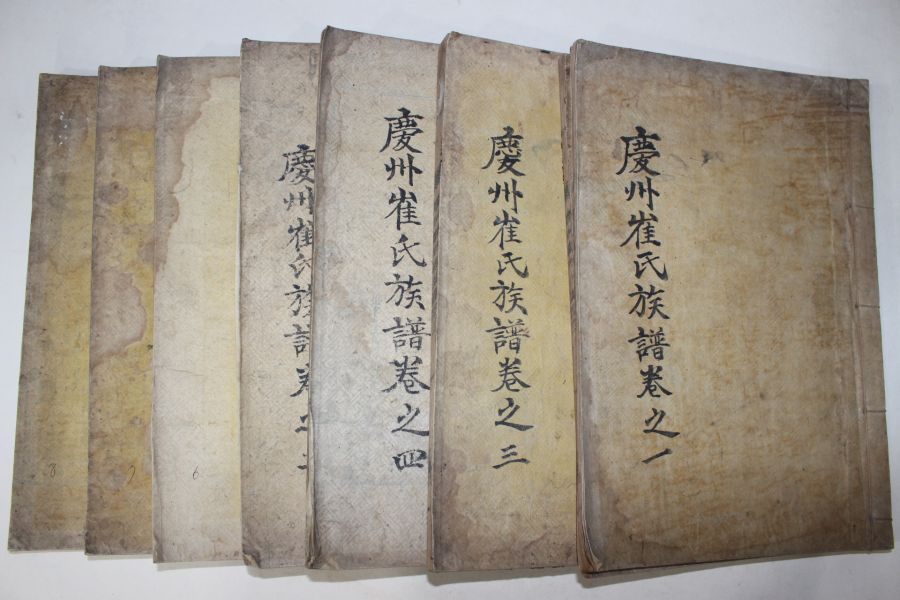 慶州崔氏族譜卷之一
慶州崔氏族譜卷之三
慶州崔氏族譜卷之四
慶州崔氏族譜卷之
6
7
8